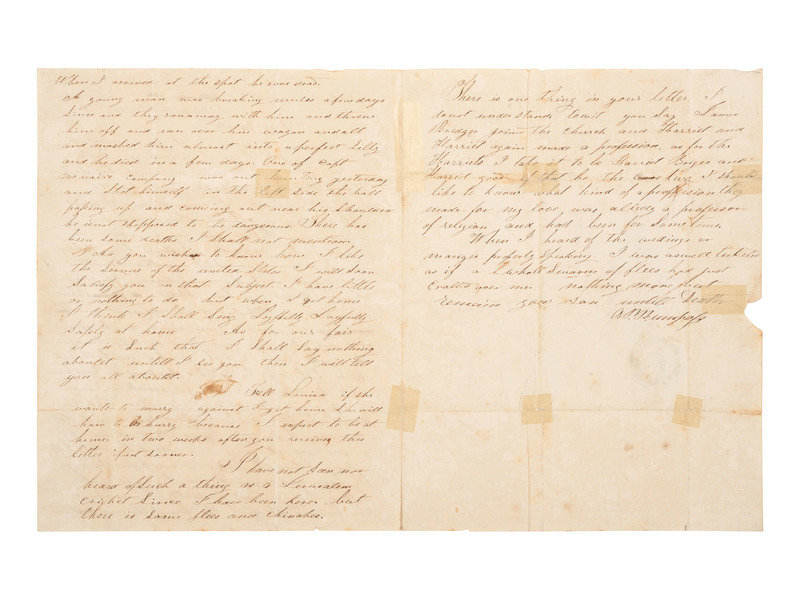 When I arrived at the spot he was dead.
A young man was breaking mules a few days
since and they ranaway with him and threw
him off and ran over him wagon and all
and mashed him almost into a perfect Jelly
and he died in a few days. One of Capt
company was out yesterday
and Shot himself in the left Side the ball
passing up and coming out near his Shoulder
he isnt Supposed to be dangerous. There has
been some deaths I Shall not mention
As you wish to know how I like
the Service of the united States I will Soon
Satisfy you on that Subject I have little
or nothing to do but when I get home
I think I Shall Sing
Safely at home As for our fair
it is Such that I Shall Say nothing
aboutit untill I see you then I will tell
you all aboutit.
Tell Louisa if she
wants to marry against I get home she will
have to hurry because I expect to be at
home in two weeks after you receive this
letter if not sooner.
I have not Seen nor
heard of Such a thing as a Jerusalem
Cricket Since I have been here but
there is Some flees and chinches.
There is one thing in your letter I
dont understand about you Say
Bridges joined the church and Harriet and
Harriet again made a profession, as for the
Harriets I take it to be Harriet and
Harriet if that be the two I Should
like to know what kind of a profession they
made for my love, was alredy a professor
of religion and had been for Sometime.
When I heard of the wedings or
mariges properly Speaking I was as
as if a whole Swarm of flees had just
over me nothing more but
remain your Son untill Death